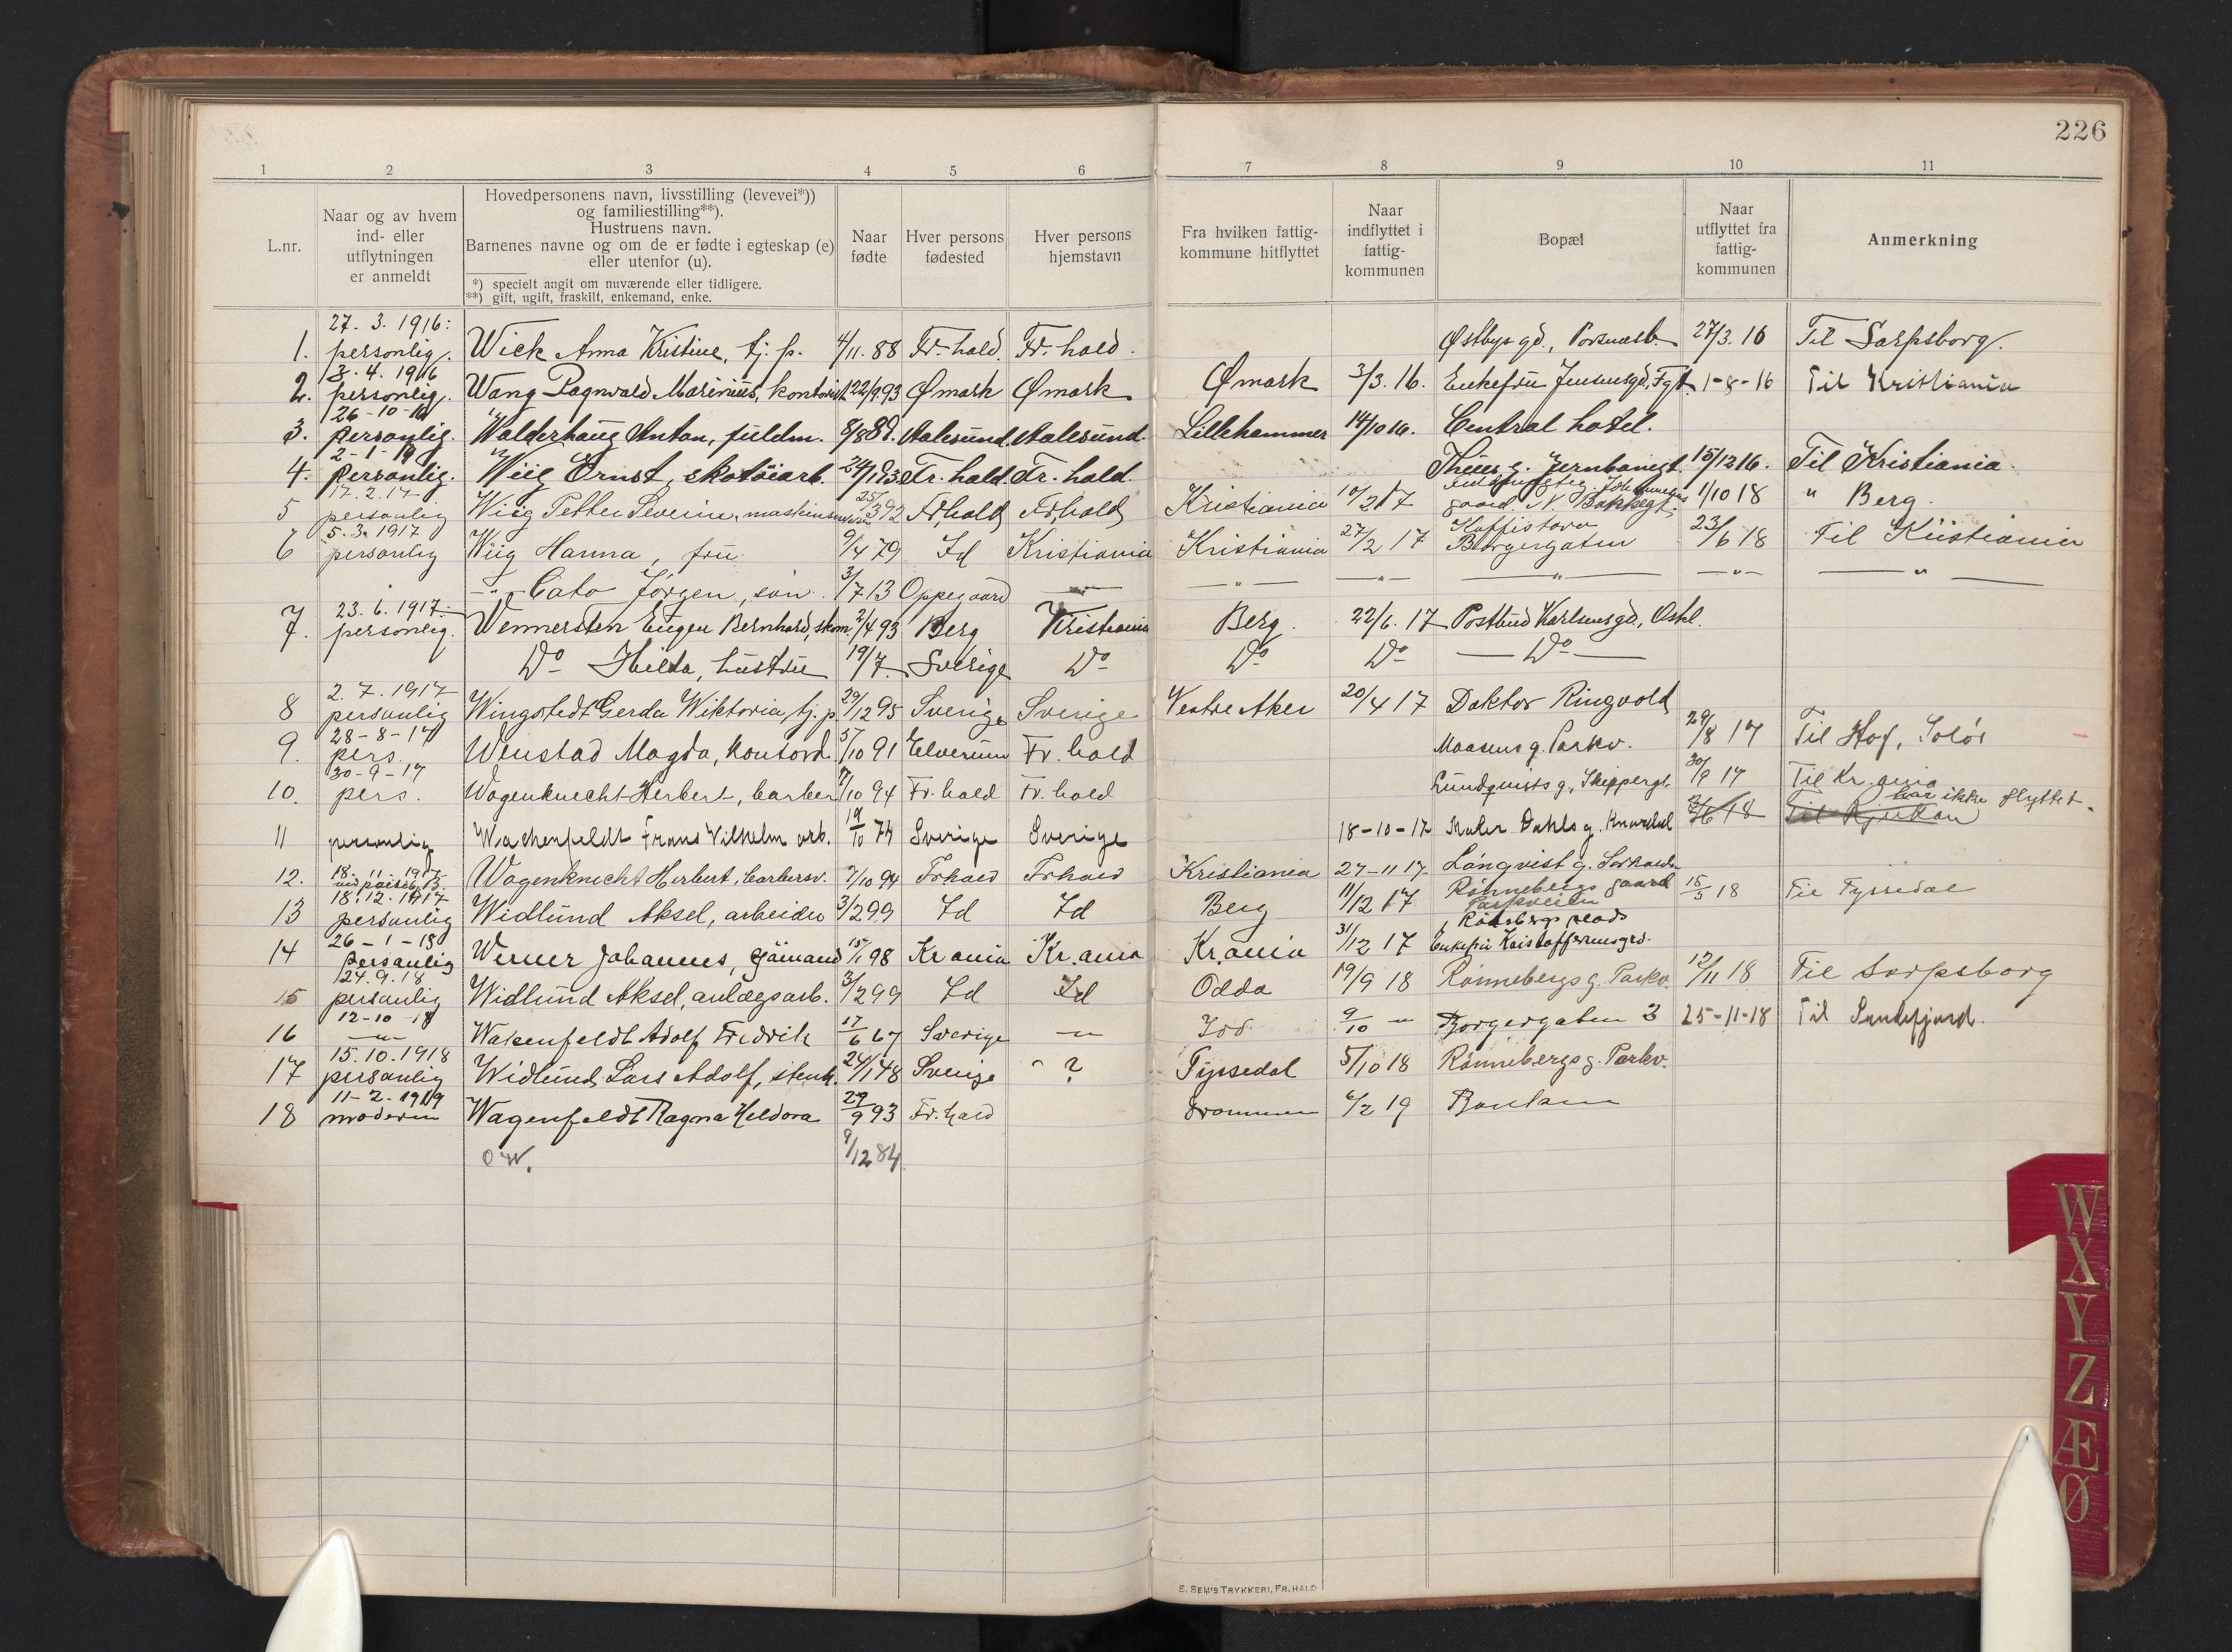 226
1 2 3 4 5 6 7 8 9 10 11
L.nr.
Naar og av hvem
ind- eller
utflytningen
er anmeldt
Hovedpersonens navn, livsstilling (levevei*))
og familiestilling**).
Hustruens navn.
Barnenes navne og om de er fødte i egteskap (e)
eller utenfor (u).
*) specielt angit om nuværende eller tidligere.
**) gift, ugift, fraskilt, enkemand, enke.
Naar
fødte
Hver persons
fødested
Hver persons
hjemstavn
Fra hvilken fattig-
kommune hitflyttet
Naar
indflyttet i
fattig-
kommunen
Bopæl
Naar
utflyttet fra
fattig-
kommunen
Anmerkning
27. 3. 1916:
1. personlig. Wick Anna Kristine, tj. p. 4/11. 88 Fr. hald. Fr. hald. Østbys gd., 27/3. 16 Til Sarpsborg.
3. 4. 1916
2. personlig. Wang Ragnvald Marinius, kontorist 22/9.93 Ømark Ømark Ømark 3/3. 16. Enkefru Jensensgd, Fgt. 1-8-16 Til Kristiania
26-10-16
3. personlig. Walderhaug Anton, fuldm. 8/8 88. Aalesund. Aalesund. Lillehammer 14/10 16. Central hotel.
2-1-19
4. personlig. Wiig Ernst, skotöiarb. 24/1 93 Fr. hald. Fr. hald. Thues g. Jernbanegt. 15/12 16. Til Kristiania.
17. 2. 17
5 personlig Wiig Petter Severin, 25/3 92 Fr.hald Fr.hald Kristiania 10/2 17 gaard. N. Bakkegt. 1/10 18 " Berg.
5. 3. 1917
6 personlig Wiig Hanna, fru 9/4 79 Id Kristiania Kristiania 27/2 17 Kaffistova Borgergaten 23/6 18 Til Kristiania
-"- Cato Jørgen, søn. 3/7 13 Oppegaard -"- -"- -"- -"- -"- -"-
23. 6. 1917
7. personlig. Wennersten Eugen Bernhard, skom. 2/4 93 Berg Kristiania Berg. 22/6. 17 Postbud Karlsensgd, Oskl.
Do Hilda, hustru 19/7. Sverige Do Do Do Do
2. 7. 1917
8 personlig Wingstedt Gerda Wiktoria, tj. p. 29/12 95 Sverige Sverige Vestre Aker 20/4 17 Doktor Ringvold
28-8-17
9. pers. Wenstad Magda, kontord. 5/10 91 Elverum Fr. hald Maasens g. Parkv. 29/8 17 Til Hof, Solör
30-9-17
10. pers. Wagenknecht Herbert, barber 7/10 94 Fr. hald Fr. hald Lundquists g., Skippergt. 30/9 17 Til Kr.ania
har ikke flyttet.
11 personlig Wachenfeldt Frans Vilhelm arb. 19/10 74 Sverige Sverige 18-10-17 Maler Dahls g. 18 Til Rjukan
18. 11. 1917
12. Wagenknecht Herbert, barbersv. 7/10 94 Frhald Frhald Kristiania 27-11 17 Langvist g.
18. 12. 1917
13 personlig Widlund Aksel, arbeider 3/2 99 Id Id Berg 11/12 17 Rønnebergs gaard Parkveien 15/5 18 Til Tyssedal
26-1-18
14 personlig Werner Johannes, sjömand 15/1 98 Kr ania Kr. ania Kr. ania 31/12 17 Enkefru Kristoffersensgrd.
24. 9. 18
15 personlig Widlund Aksel, anlægsarb. 3/2 99 Id Id Odda 19/9 18 Rønnebergs g. Parkv. 12/11 18 Til Sarpsborg
12-10-18
16 -"- Wakenfeldt Adolf Fredrik 17/6 67 Sverige -"- 9/10 " Borgergaten 3 25-11-18 Til Sandefjord.
15. 10. 1918
17 personlig Widlund, Lars Adolf, stenh. 24/1 48 Sverige ? Tyssedal 5/10 18 Rønnebergs g. Parkv.
11-2-1919
18 moderen Wagenfeldt Ragna Heldora 29/9 93 Fr. hald Drammen 6/2 19
O W. 9/12 84
E. SEM'S TRYKKERI, FR.HALD
W
X
Y
Z
Æ
Ø